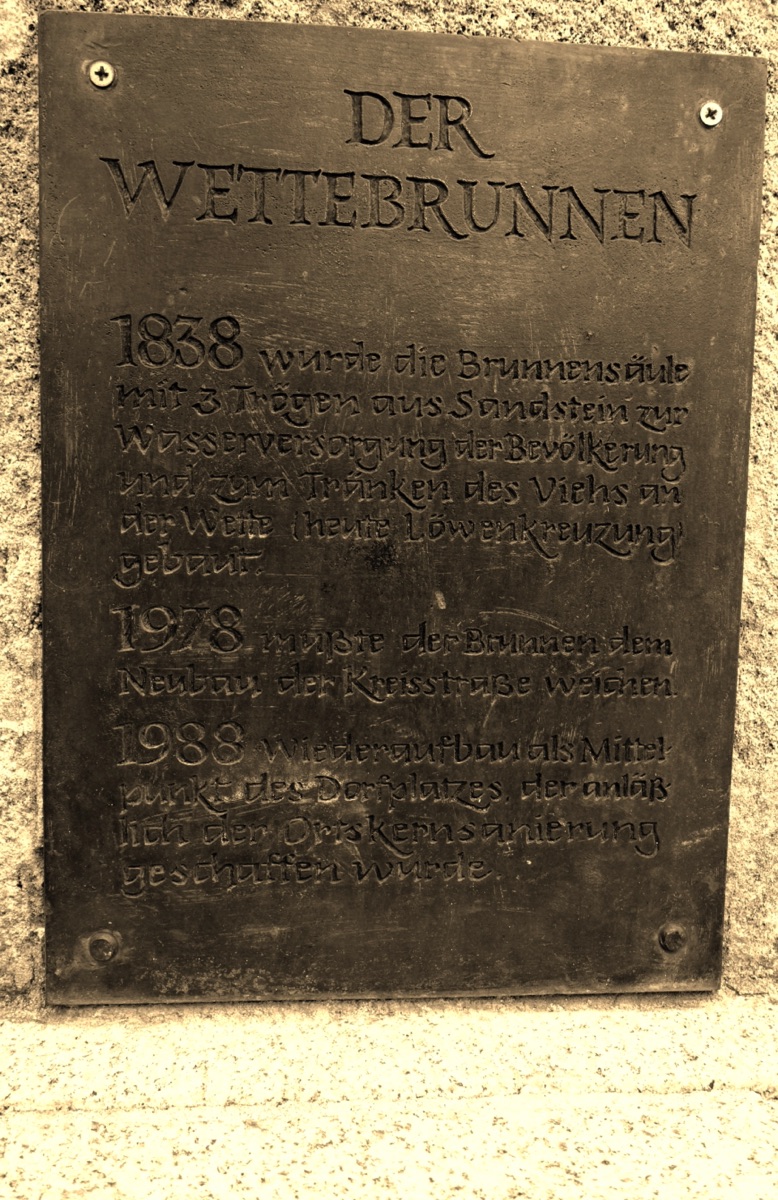 DER
WETTEBRUNNEN
1838 wurde die Brunnensäule
mit 3 Trögen aus Sandstein zur
Wasserversorgung der Bevölkerung
und zum Tränken des Viehs an
der Wette (heute Löwenkreuzung)
gebaut.
1978 mußte der Brunnen dem
Neubau der Kreisstraße weichen.
1988 Wiederaufbau als Mittel-
punkt des Dorfplatzes, der anläß-
lich der Ortskernsanierung
geschaffen wurde.